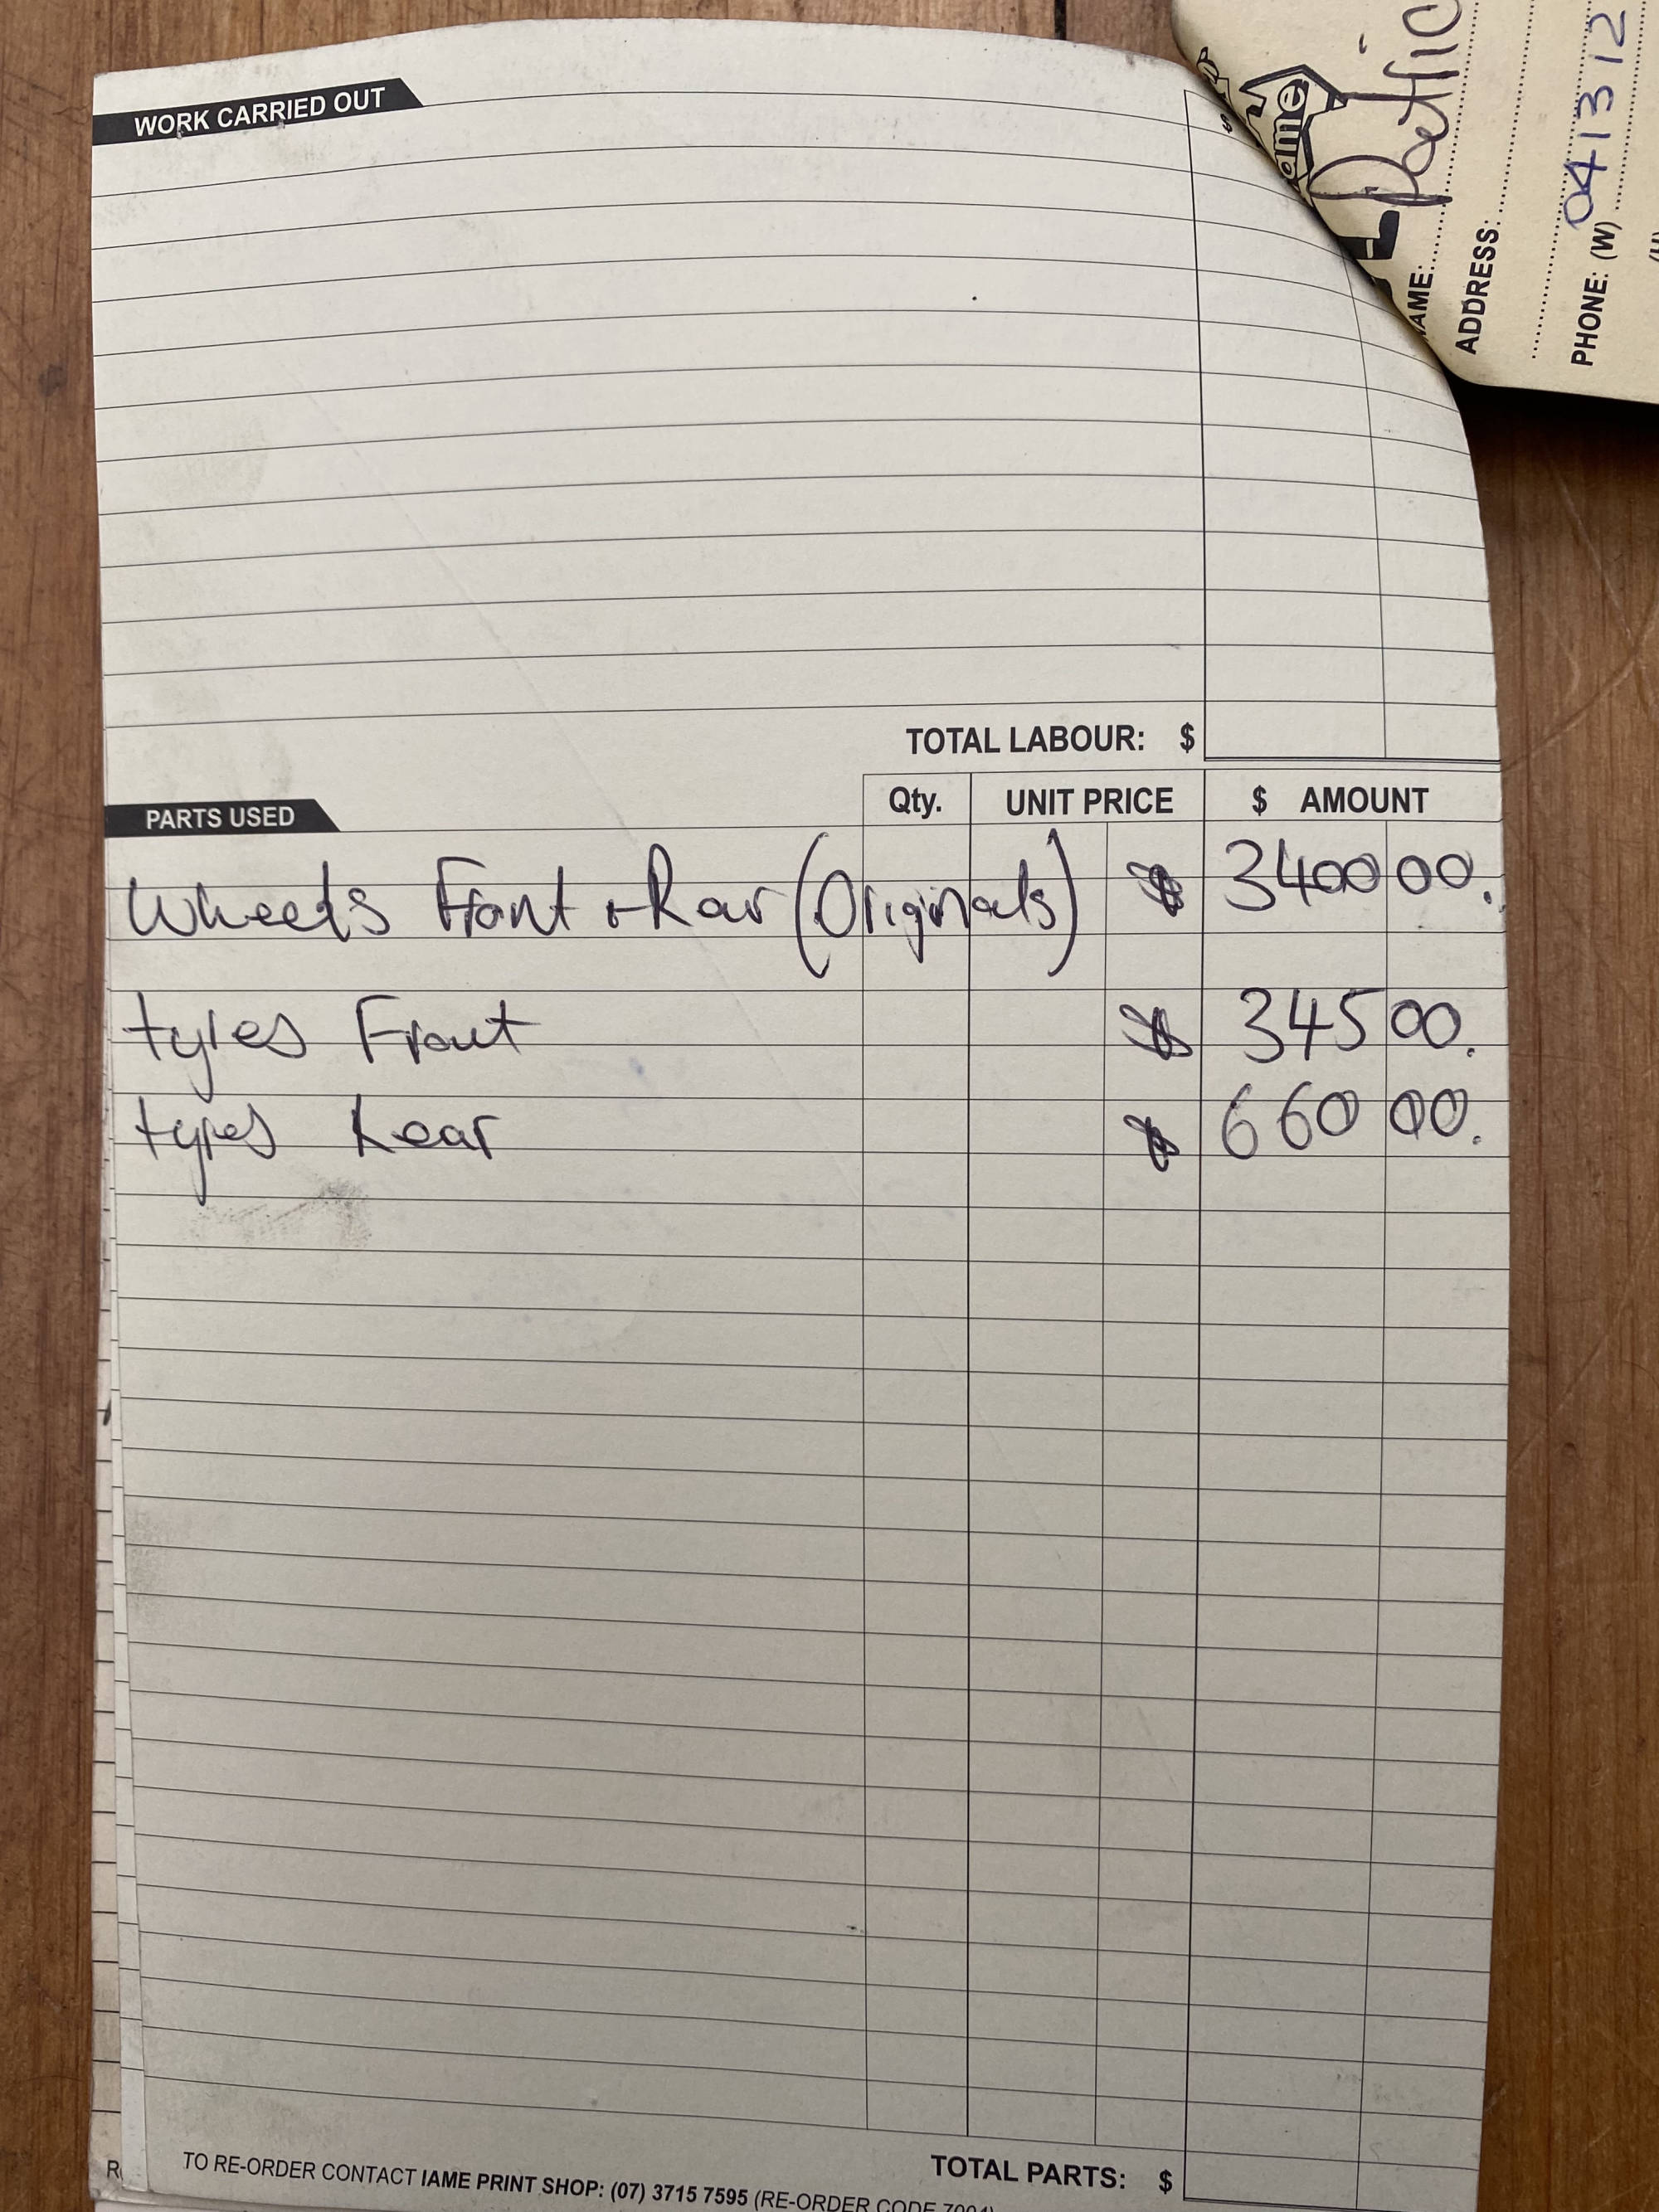 WORK CARRIED OUT
TOTAL LABOUR: $
PARTS USED
Qty. UNIT PRICE $ AMOUNT
Wheels Front + Rear (Originals) $ 3400 00.
tyres Front $ 345 00.
tyres Rear $ 660 00.
TOTAL PARTS: $
TO RE-ORDER CONTACT IAME PRINT SHOP: (07) 3715 7595 (RE-ORDER CODE
ame
AME:
ADDRESS:
PHONE: (W) 041312